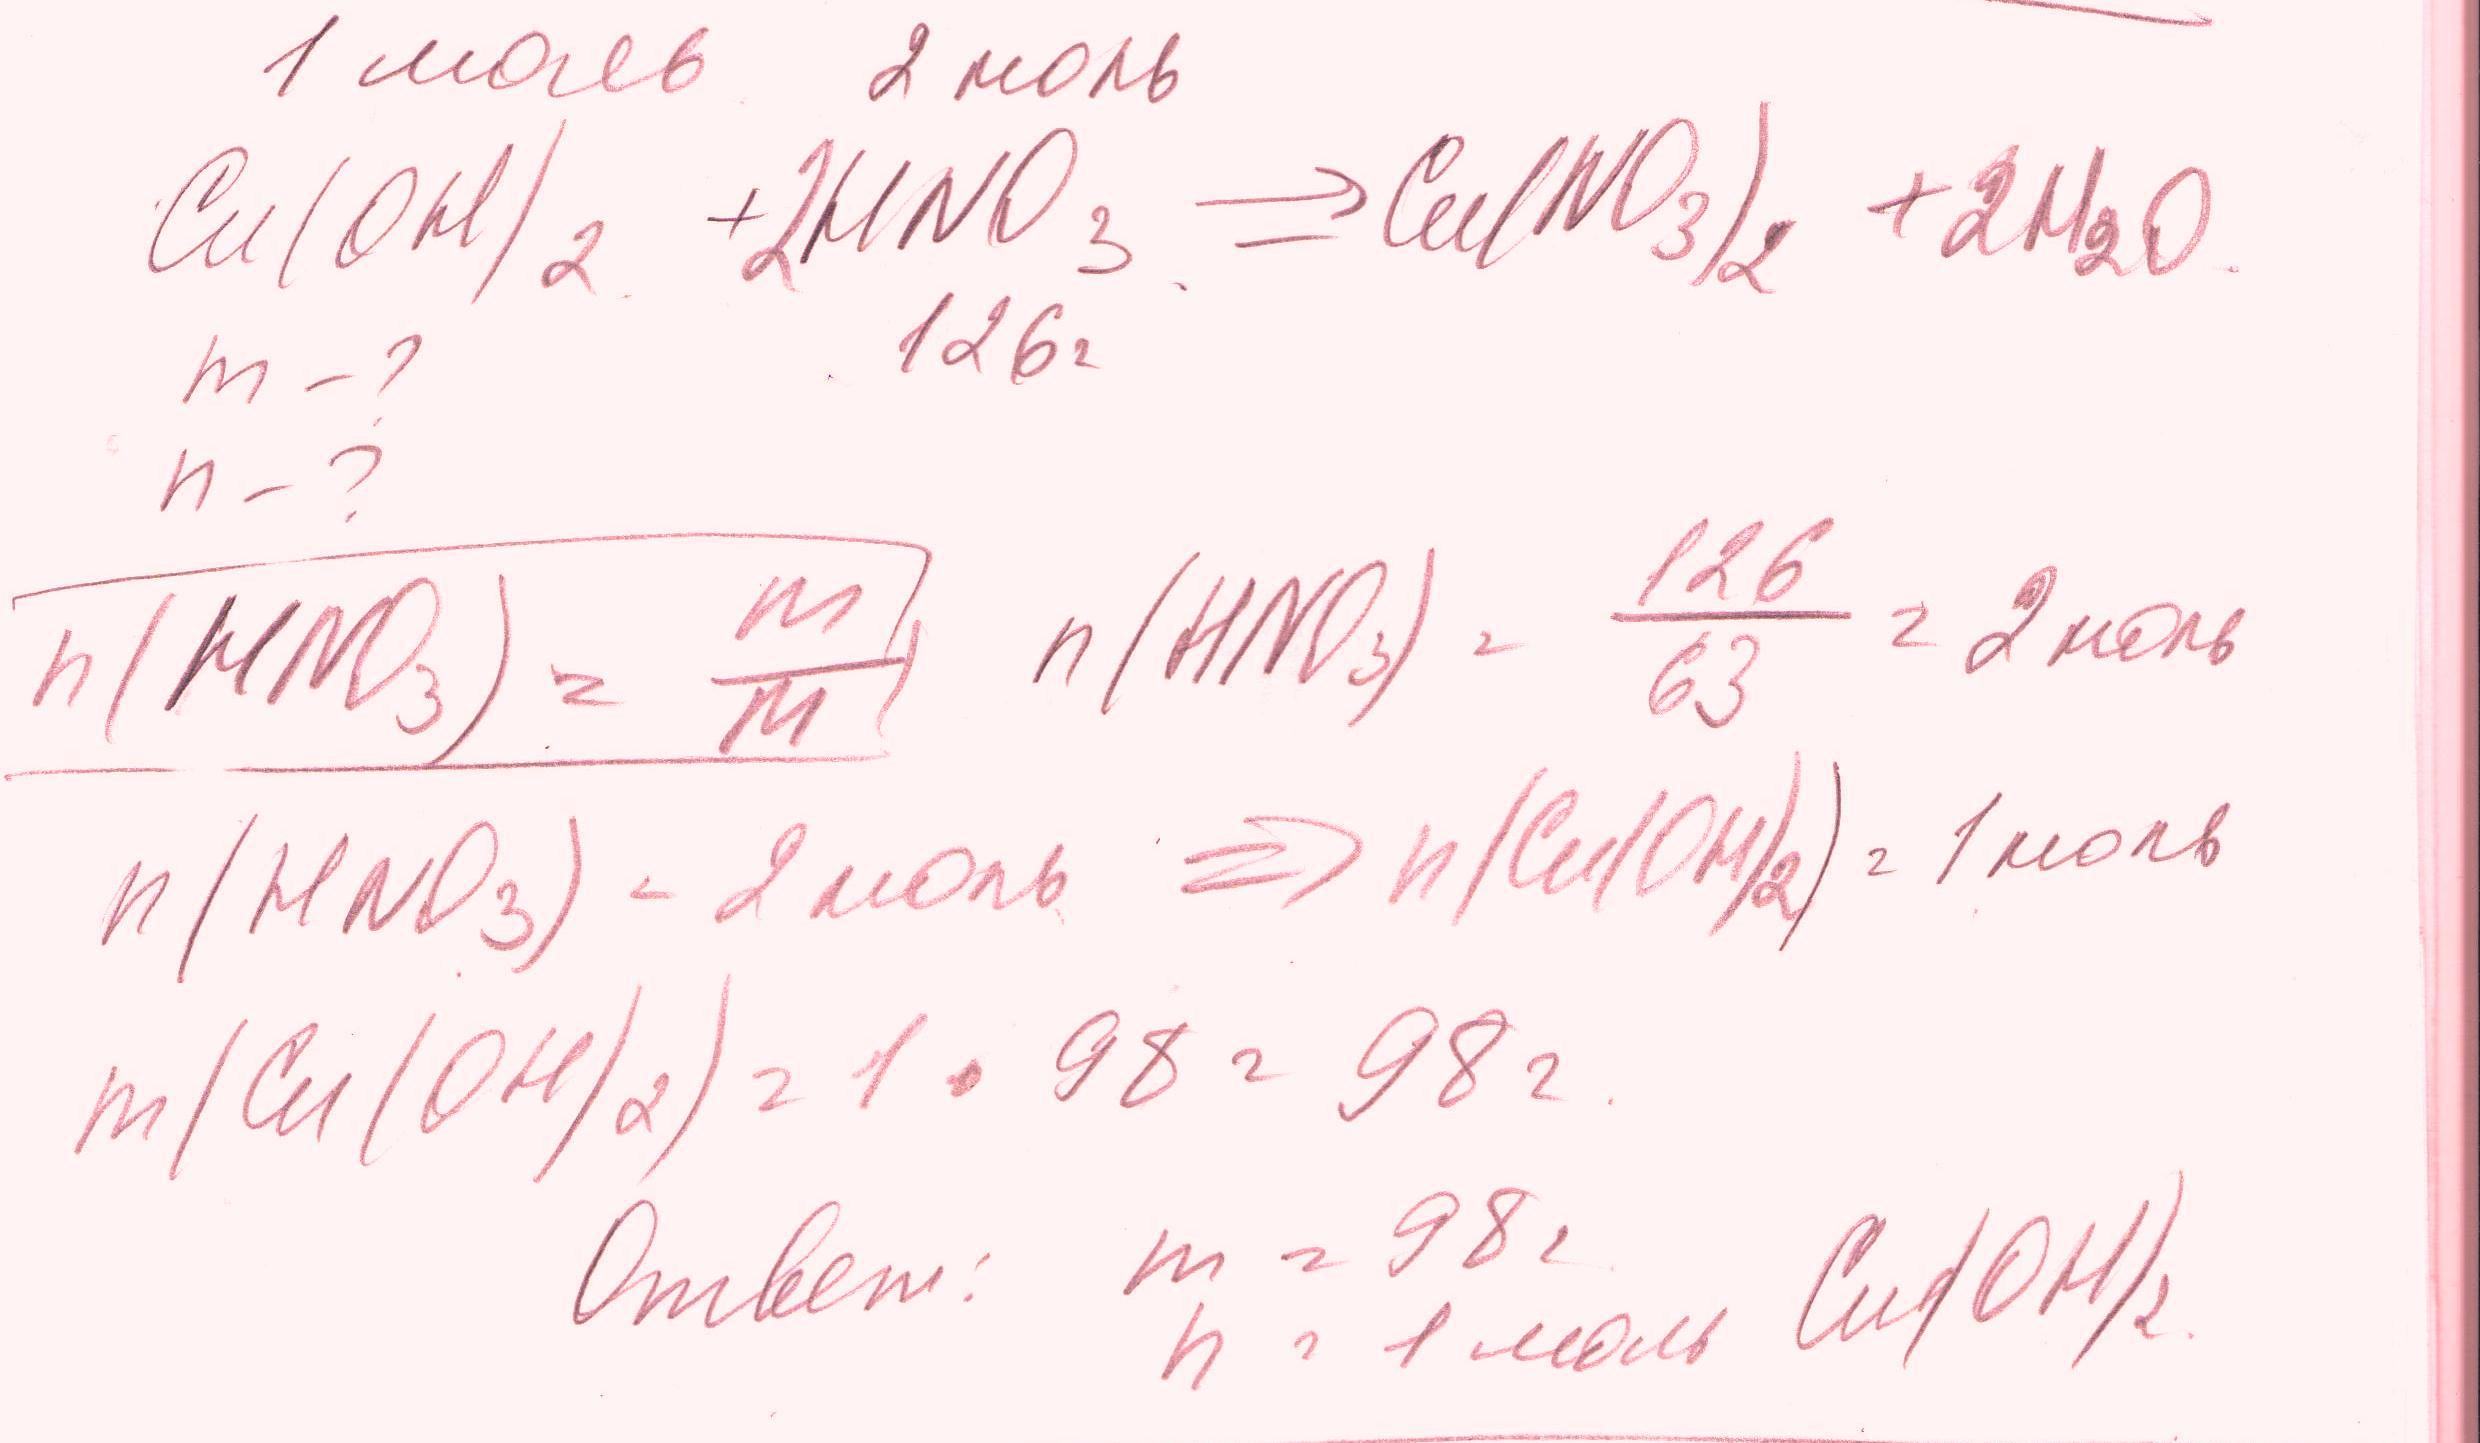 1 моль 2 моль
Cu(OH)2 + 2HNO3 => Cu(NO3)2 + 2H2O.
m - ? 126г
n - ?
n(HNO3) = m/M n(HNO3) = 126/63 = 2 моль
n(HNO3) - 2 моль => n(Cu(OH)2) = 1 моль
m(Cu(OH)2) = 1 • 98 = 98 г.
Ответ: m = 98 г
n = 1 моль Cu(OH)2.